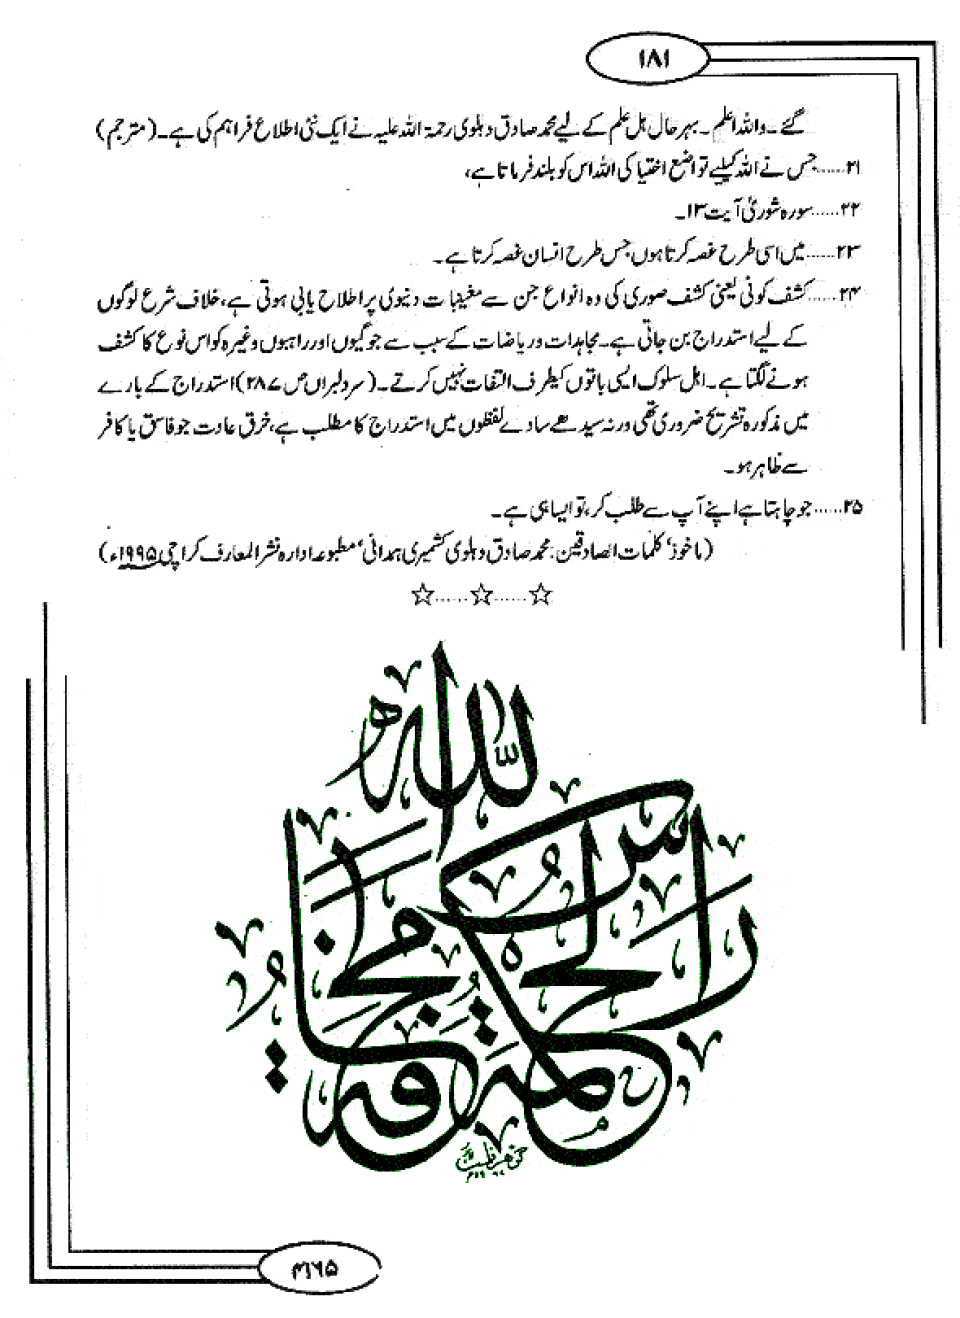 ۱۸۱
گئے۔ واللہ اعلم۔ بہر حال ہل علم کے لیے محمد صادق دہلوی رحمۃ اللہ علیہ نے ایک نئی اطلاع فراہم کی ہے۔ (مترجم)
۲۱......جس نے اللہ کیلیے تواضع اختیا کی اللہ اس کو بلند فرماتا ہے،
۲۲......سورہ شوریٰ آیت ۱۳۔
۲۳......میں اسی طرح غصہ کرتا ہوں جس طرح انسان غصہ کرتا ہے۔
۲۴......کشف کونی یعنی کشف صوری کی وہ انواع جن سے مغیبات دنیوی پر اطلاح یابی ہوتی ہے، خلاف شرع لوگوں
کے لیے استدراج بن جاتی ہے۔ مجاہدات و ریاضات کے سبب سے جوگیوں اور راہبوں وغیرہ کو اس نوع کا کشف
ہونے لگتا ہے۔ اہل سلوک ایسی باتوں کیطرف التفات نہیں کرتے۔ (سر دلبراں ص ۲۸۷) استدراج کے بارے
میں مذکورہ تشریح ضروری تھی ورنہ سیدھے سادے لفظوں میں استدراج کا مطلب ہے، خرق عادت جو فاسق یا کافر
سے ظاہر ہو۔
۲۵......جو چاہتا ہے اپنے آپ سے طلب کر، تو ایسا ہی ہے۔
(ماخوذ ‘ کلمات الصادقین : محمد صادق دہلوی کشمیری ہمدانی ‘ مطبوعہ ادارہ نشر المعارف کراچی ۱۹۹۵ء)
☆......☆......☆
راس الحکمۃ مخافۃ اللہ
۳۱۶۵